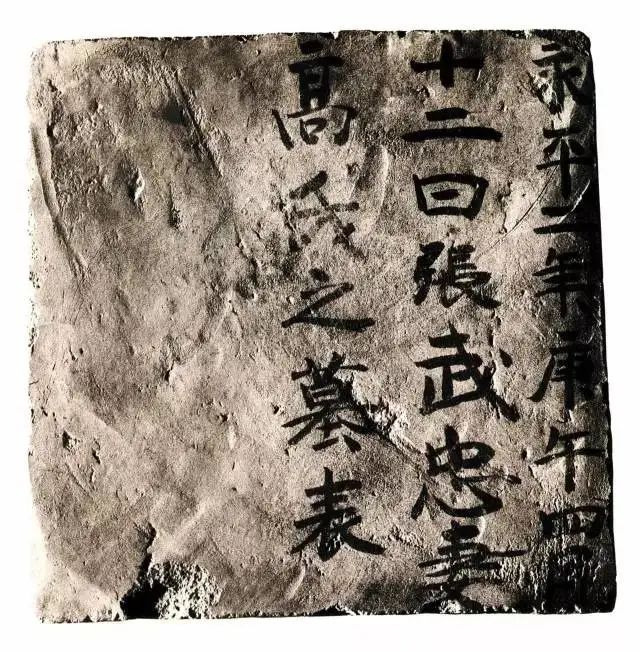 永平二年庚午四月
十二日張武忠妻
高氏之墓表